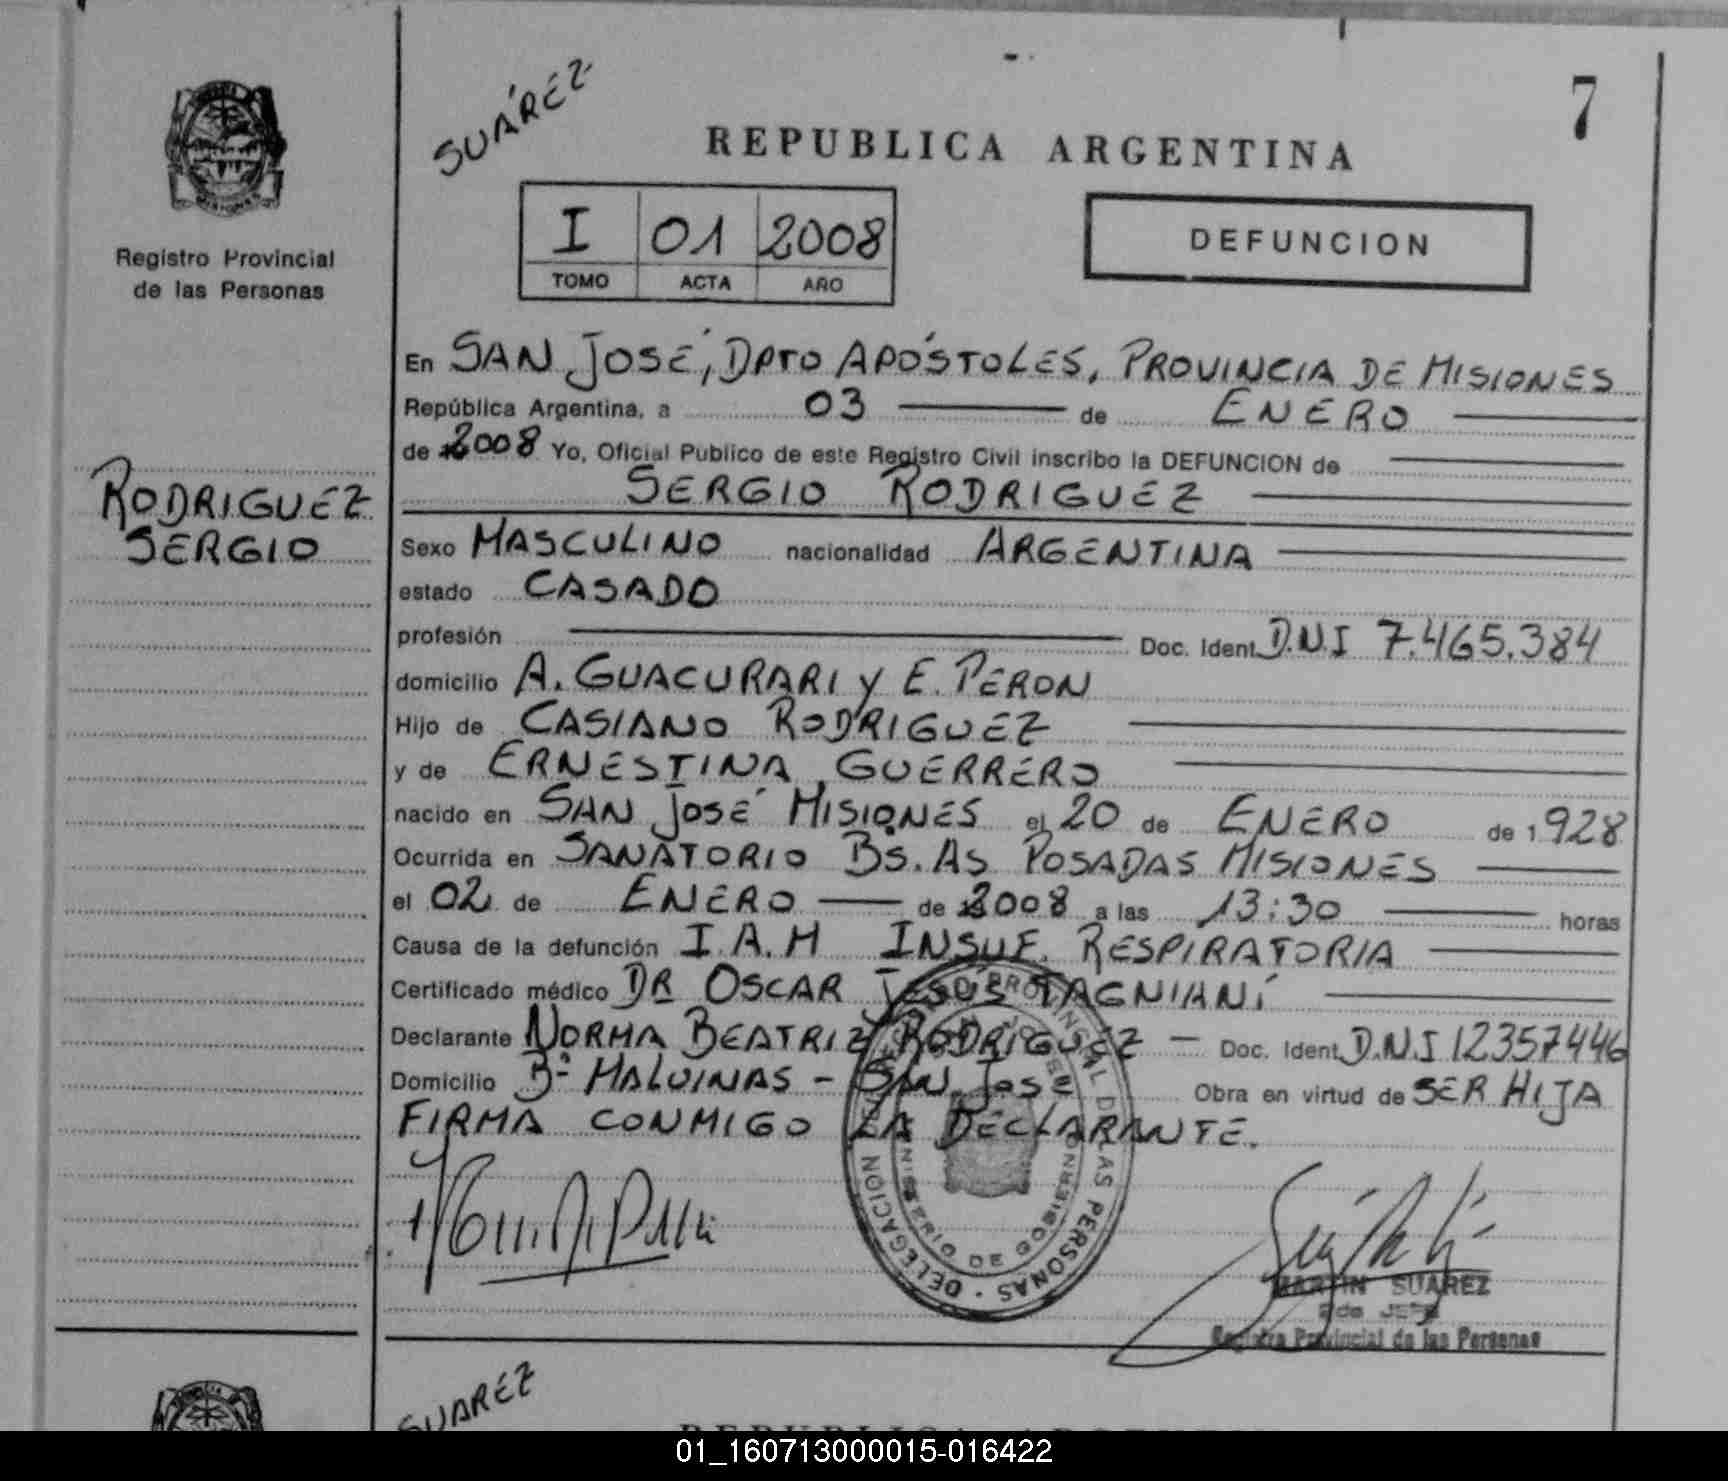 SUÁREZ
7
REPUBLICA ARGENTINA
I 01 2008
TOMO ACTA AÑO
DEFUNCION
Registro Provincial
de las Personas
RODRIGUEZ
SERGIO
En SAN JOSÉ, DPTO APÓSTOLES, PROVINCIA DE MISIONES
República Argentina, a 03 de ENERO
de 2008 Yo, Oficial Público de este Registro Civil inscribo la DEFUNCION de
SERGIO RODRIGUEZ
Sexo MASCULINO nacionalidad ARGENTINA
estado CASADO
profesión Doc. Ident. D.N.I 7.465.384
domicilio A. GUACURARI y E. PERON
Hijo de CASIANO RODRIGUEZ
y de ERNESTINA GUERRERO
nacido en SAN JOSÉ MISIONES el 20 de ENERO de 1928
Ocurrida en SANATORIO BS. AS POSADAS MISIONES
el 02 de ENERO de 2008 a las 13:30 horas
Causa de la defunción I.A.M INSUF. RESPIRATORIA
Certificado médico DR OSCAR JESÚS TAGNIANI
Declarante NORMA BEATRIZ RODRIGUEZ - Doc. Ident. D.N.I 12357446
Domicilio Bº MALVINAS - SAN JOSE Obra en virtud de SER HIJA
FIRMA CONMIGO LA DECLARANTE.
REGISTRO PROVINCIAL DE LAS PERSONAS - DELEGACION
MINISTERIO DE GOBIERNO
MARTIN SUAREZ
2do JEFE
Registro Provincial de las Personas
SUAREZ
REPUBLICA ARGENTINA
01_160713000015-016422